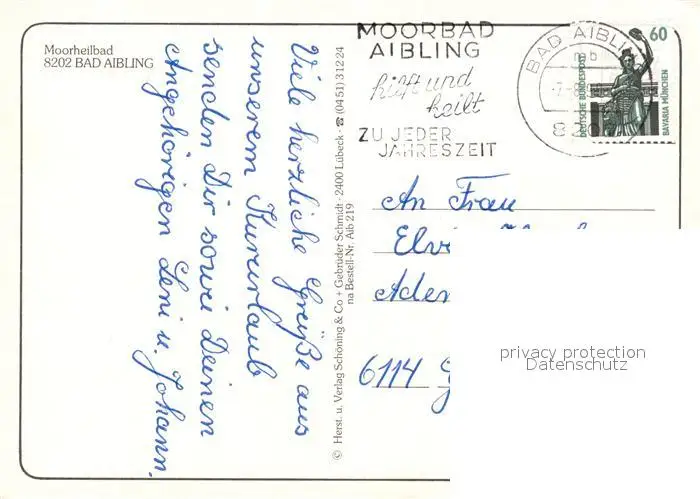 Moorheilbad
8202 BAD AIBLING
Viele herzliche Grüße aus
unserem Kururlaub
senden Dir sowie Deinen
Angehörigen Leni u. Johann.
© Herst. u. Verlag Schöning & Co + Gebrüder Schmidt · 2400 Lübeck · ☎ (04 51) 3 12 24
na Bestell-Nr. Aib 219
MOORBAD
AIBLING
hilft und
heilt
ZU JEDER
JAHRESZEIT
BAD AIBLING
mb
60
DEUTSCHE BUNDESPOST
BAVARIA MÜNCHEN
An Frau
6114
privacy protection
Datenschutz